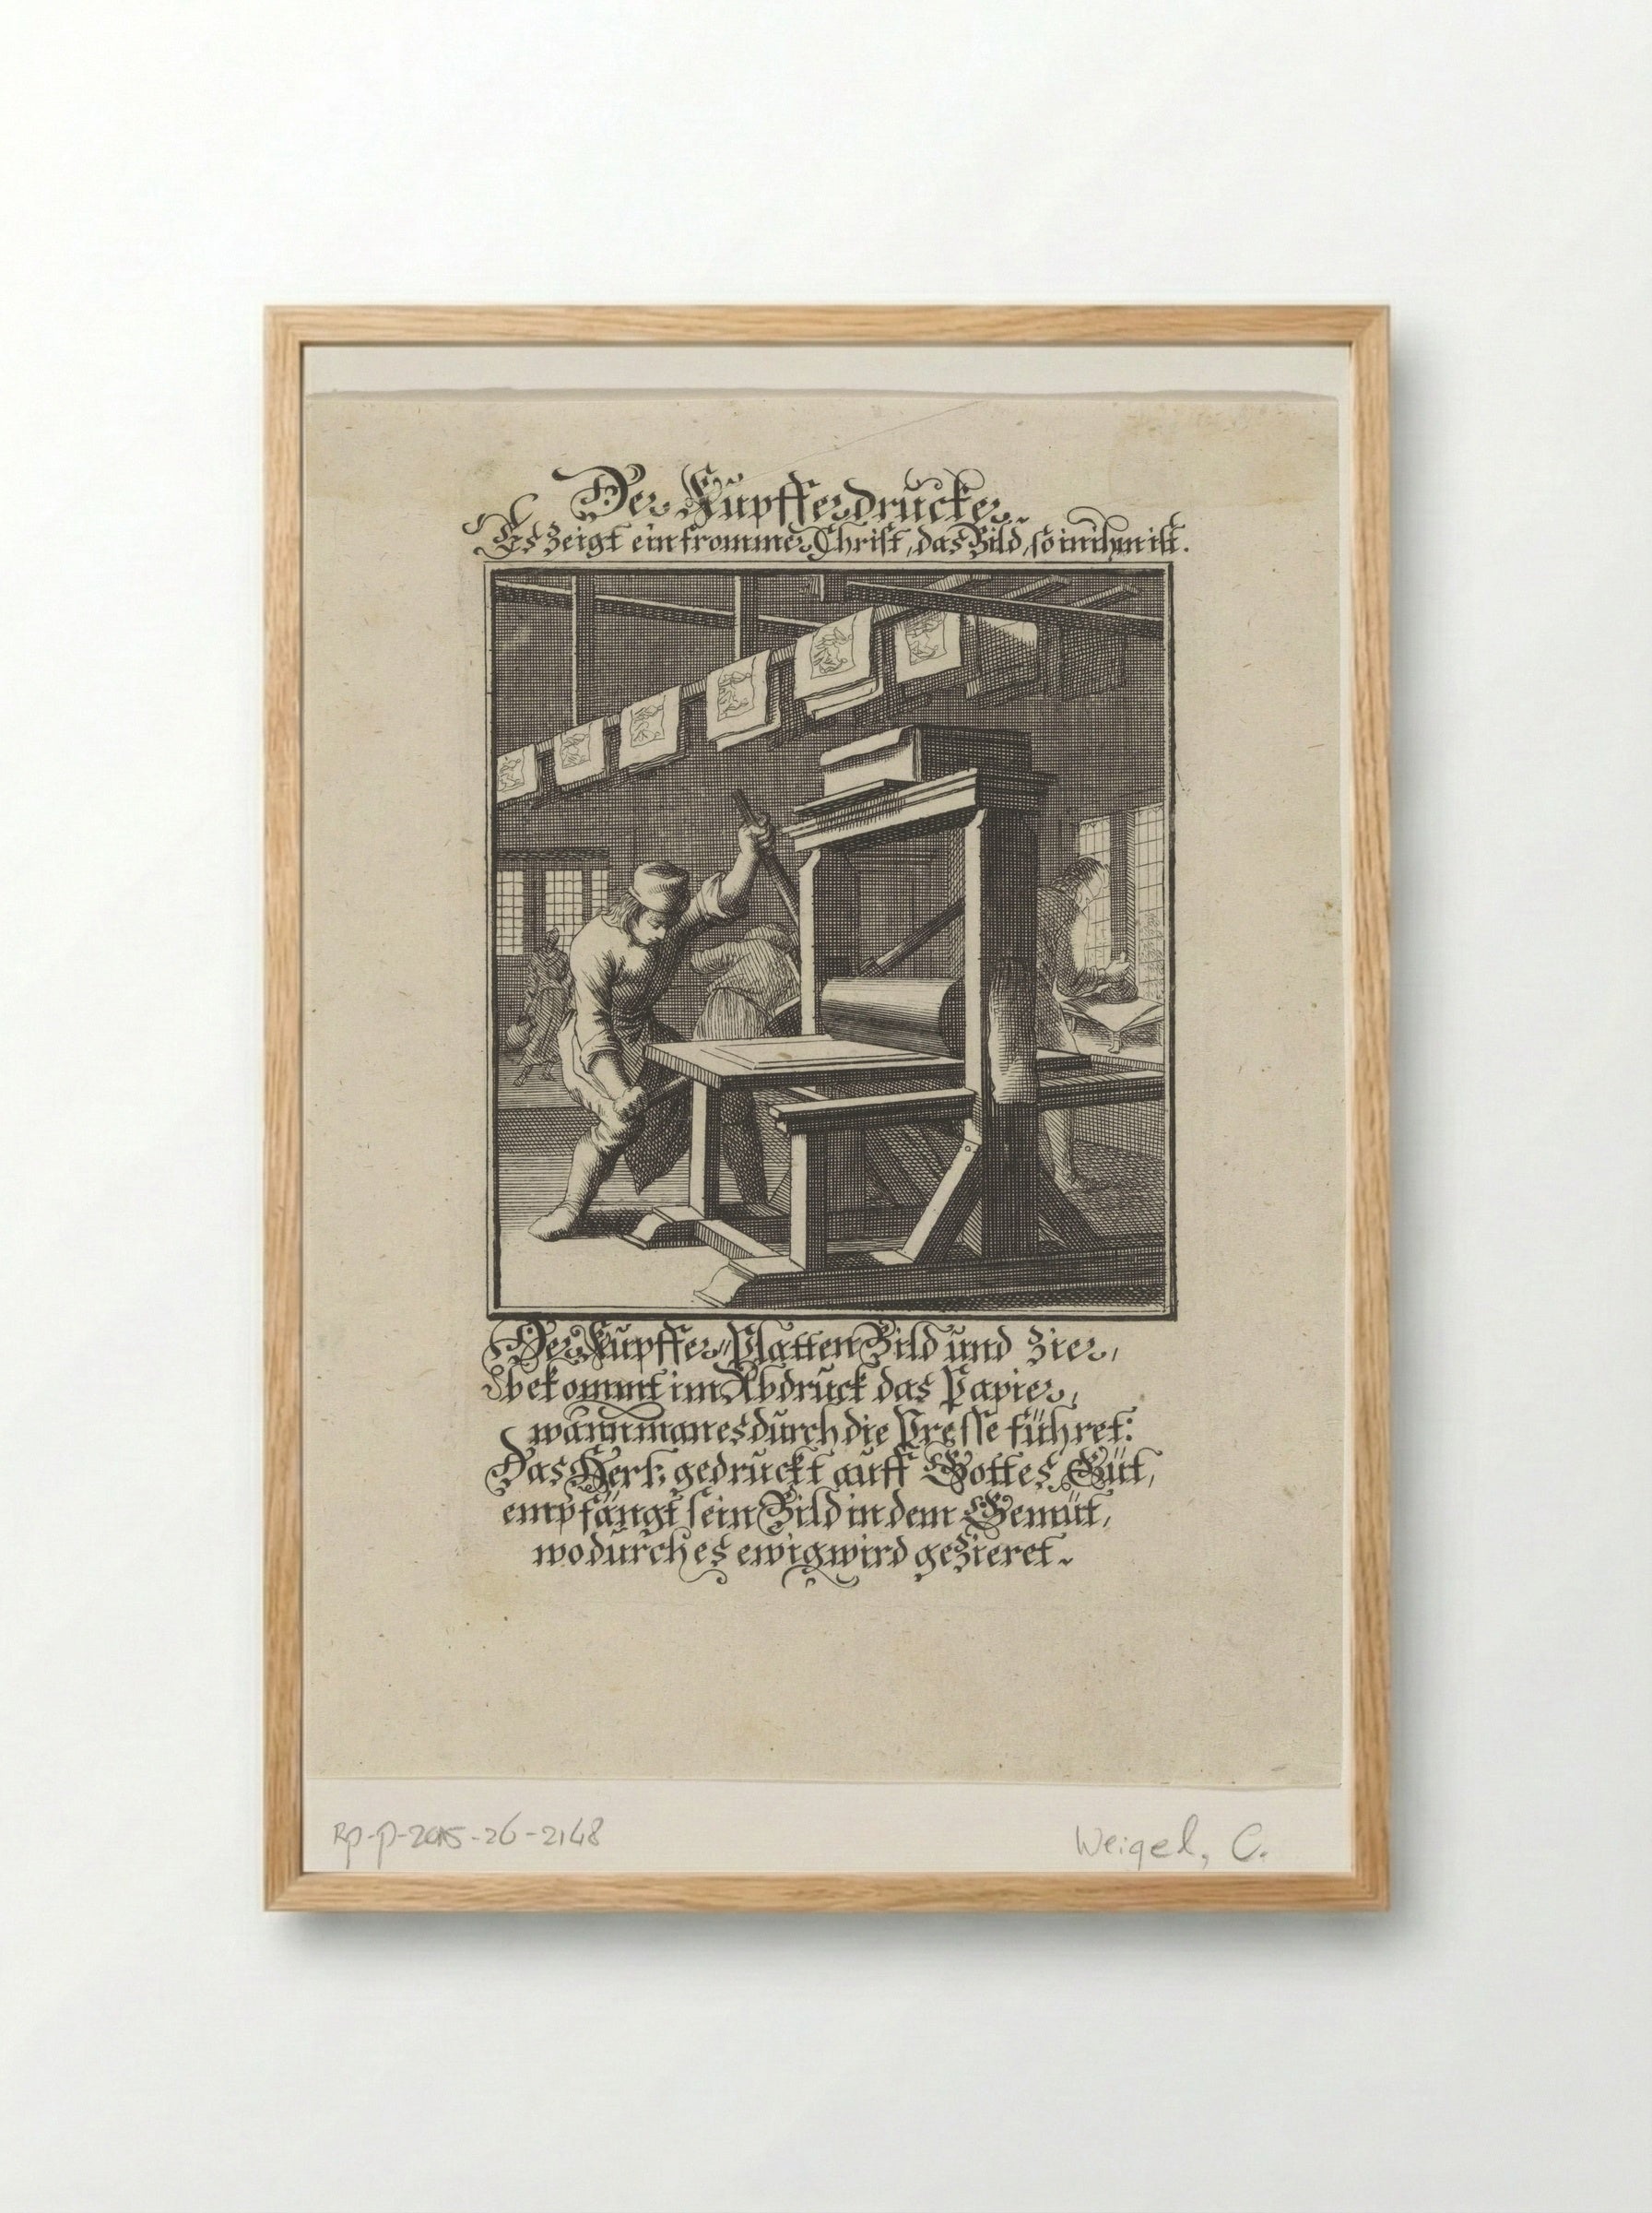 Der Kupfferdrucker.
Es zeigt ein frommer Christ, das Bild, so in ihm ist.
Der Kupffer-Platten Bild und Zier,
bekommt im Abdruck das Papier,
wann man es durch die Presse führet:
Das Hertz gedruckt auff Gottes Güt,
empfängt sein Bild in dem Gemüt,
wodurch es ewig wird gezieret.
RP-P-2015-26-2148
Weigel, C.